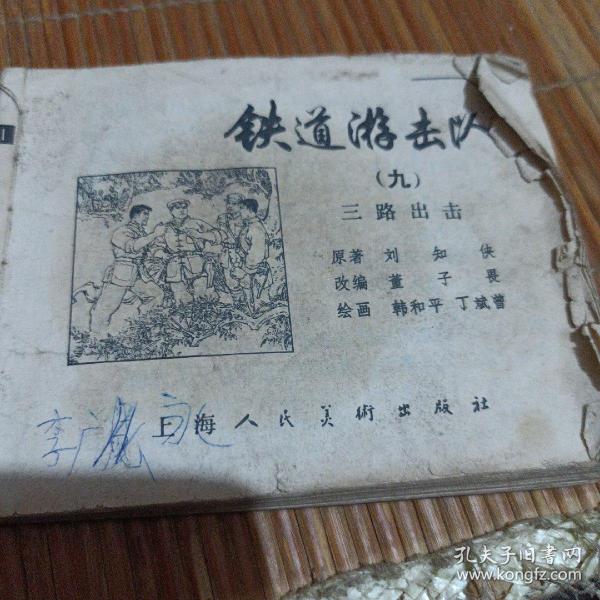 铁道游击队
（九）
三路出击
原著 刘知侠
改编 董子畏
绘画 韩和平 丁斌曾
上海人民美術出版社
孔夫子旧书网
www.kongfz.com